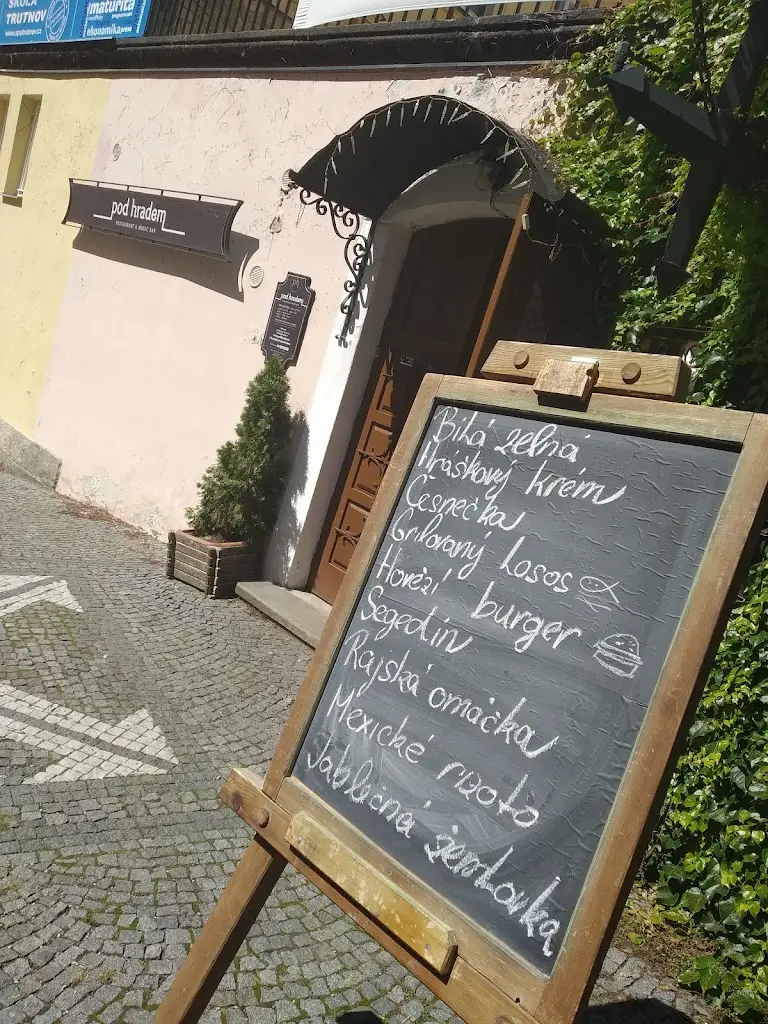 ŠKOLA
TRUTNOV
www.spstrutnov.cz
maturita
ekonomika
pod hradem
RESTAURANT & MUSIC BAR
pod hradem
Bílá zelná
Hráškový krém
Česnečka
Grilovaný losos
Hovězí burger
Segedín
Rajská omáčka
Mexické rizoto
Jablečná žemlovka